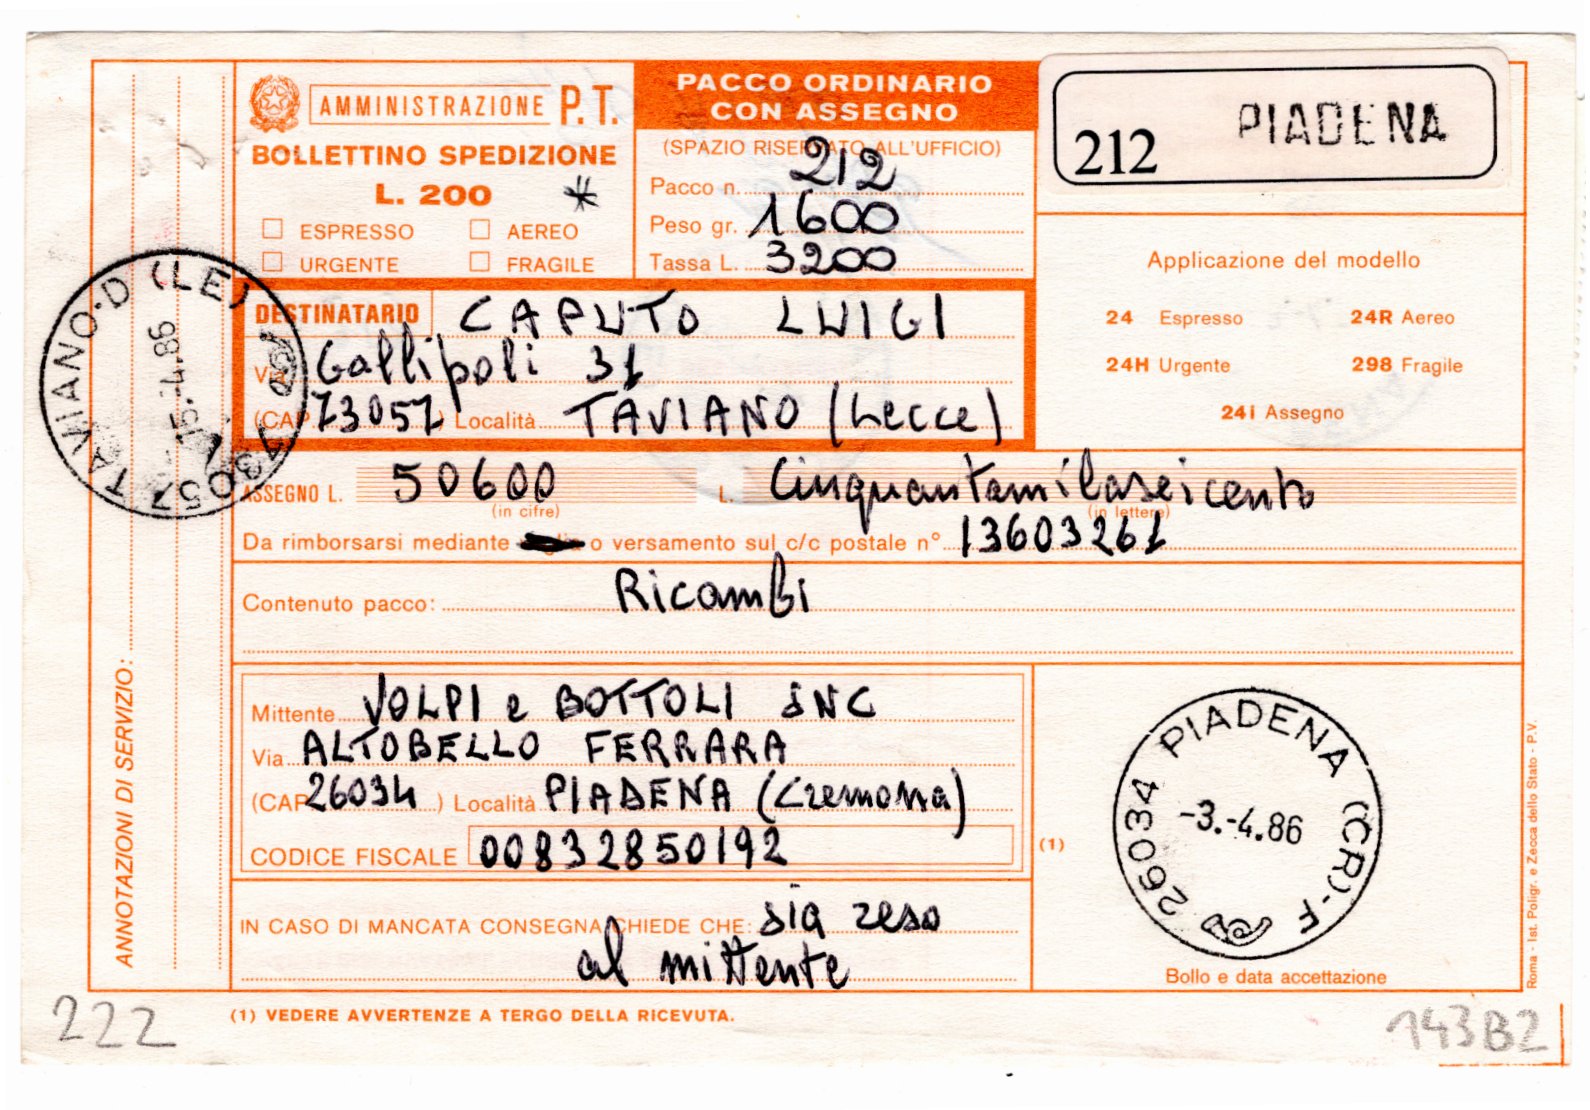 AMMINISTRAZIONE P.T.
BOLLETTINO SPEDIZIONE
L. 200 *
ESPRESSO AEREO
URGENTE FRAGILE
PACCO ORDINARIO
CON ASSEGNO
(SPAZIO RISERVATO ALL'UFFICIO)
Pacco n. 212
Peso gr. 1600
Tassa L. 3200
212 PIADENA
Applicazione del modello
24 Espresso 24R Aereo
24H Urgente 298 Fragile
24I Assegno
DESTINATARIO CAPUTO LUIGI
Via Gallipoli 31
(CAP 73057) Località TAVIANO (Lecce)
73057 TAVIANO-D (LE)
-5.-4.86
ASSEGNO L. 50600 L. Cinquantamilaseicento
(in cifre) (in lettere)
Da rimborsarsi mediante o versamento sul c/c postale n° 13603261
Contenuto pacco: Ricambi
Mittente VOLPI e BOTTOLI SNC
Via ALTOBELLO FERRARA
(CAP 26034) Località PIADENA (Cremona)
CODICE FISCALE 00832850192
IN CASO DI MANCATA CONSEGNA CHIEDE CHE: sia reso
al mittente
(1)
26034 PIADENA (CR)-F
-3.-4.86
Bollo e data accettazione
ANNOTAZIONI DI SERVIZIO:
Roma - Ist. Poligr. e Zecca dello Stato - P.V.
(1) VEDERE AVVERTENZE A TERGO DELLA RICEVUTA.
222
143B2